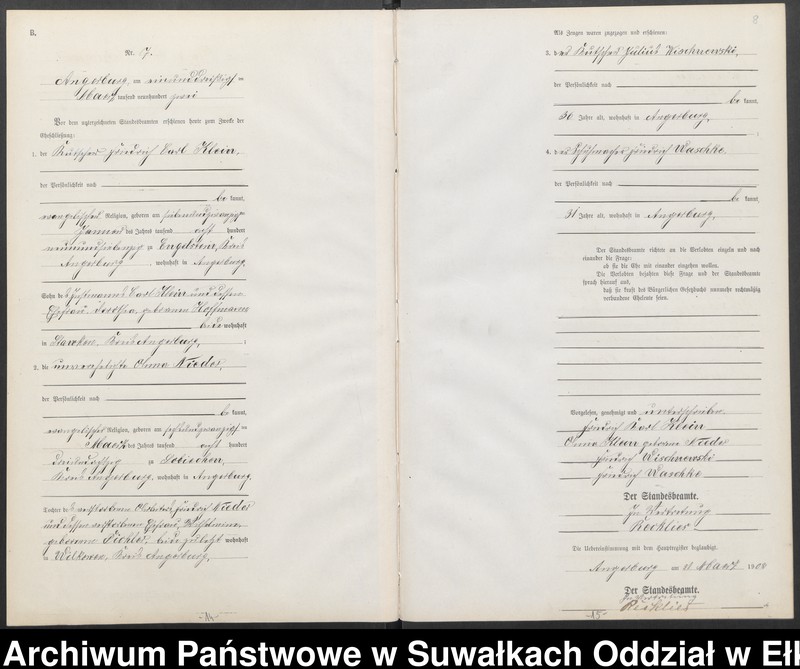 B.
Nr. 7.
Angerburg, am einunddreißigsten
März tausend neunhundert zwei
Vor dem unterzeichneten Standesbeamten erschienen heute zum Zwecke der
Eheschließung:
1. der Kutscher Friedrich Carl Klein,
der Persönlichkeit nach
be kannt,
evangelischer Religion, geboren am siebenundzwanzigsten
Januar des Jahres tausend acht hundert
neunundsiebenzig zu Engelstein, Kreis
Angerburg, wohnhaft in Angerburg,
Sohn des Carl Klein und dessen
Ehefrau, geborenen Hoffmann
beide wohnhaft
in Kreis Angerburg, ;
2. die unverehelichte Anna Nieder,
der Persönlichkeit nach
be kannt,
evangelischer Religion, geboren am sechsundzwanzigsten
März des Jahres tausend acht hundert
zu
Kreis Angerburg, wohnhaft in Angerburg
Tochter des verstorbenen Friedrich Nieder
und dessen verstorbenen Ehefrau, Wilhelmine
geborenen beide zuletzt wohnhaft
in Wilkowen, Kreis Angerburg,
-14-
8
Als Zeugen waren zugezogen und erschienen:
3. der Kutscher Julius Wischnewski,
der Persönlichkeit nach
be kannt,
30 Jahre alt, wohnhaft in Angerburg,
;
4. der Schuhmacher Friedrich Waschke
der Persönlichkeit nach
be kannt,
31 Jahre alt, wohnhaft in Angerburg,
Der Standesbeamte richtete an die Verlobten einzeln und nach
einander die Frage:
ob sie die Ehe mit einander eingehen wollen.
Die Verlobten bejahten diese Frage und der Standesbeamte
sprach hierauf aus,
daß sie kraft des Bürgerlichen Gesetzbuchs nunmehr rechtmäßig
verbundene Eheleute seien.
Vorgelesen, genehmigt und unterschrieben
Friedrich Karl Klein
Anna Klein geborene Nieder
Wischnewski
Friedrich Waschke
Der Standesbeamte.
In Vertretung
Die Uebereinstimmung mit dem Hauptregister beglaubigt.
Angerburg am März 190
Der Standesbeamte.
In Vertretung
-15-
Archiwum Państwowe w Suwałkach Oddział w Eł